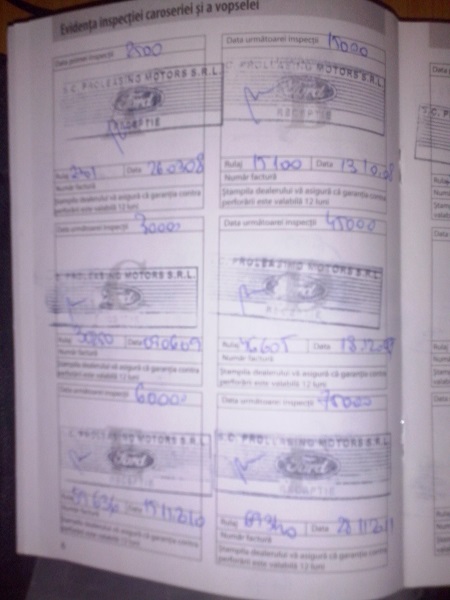 Evidența inspecției caroseriei și a vopselei
Data primei inspecții 2500
S.C. PROLEASING MOTORS S.R.L.
Ford
RECEPTIE
Rulaj Data 26.03.08
Număr factură
Ștampila dealerului vă asigură că garanția contra
perforării este valabilă 12 luni
Data următoarei inspecții 15000
S.C. PROLEASING MOTORS S.R.L.
Ford
RECEPTIE
Rulaj 15100 Data 13.10.08
Număr factură
Ștampila dealerului vă asigură că garanția contra
perforării este valabilă 12 luni
Data următoarei inspecții 30000
S.C. PROLEASING MOTORS S.R.L.
Ford
Rulaj Data 09.06.09
Număr factură
Ștampila dealerului vă asigură că garanția contra
perforării este valabilă 12 luni
Data următoarei inspecții 45000
PROLEASING MOTORS S.R.L.
Ford
RECEPTIE
Rulaj 46605 Data 18.12.09
Număr factură
Ștampila dealerului vă asigură că garanția contra
perforării este valabilă 12 luni
Data următoarei inspecții 60000
S.C. PROLEASING MOTORS S.R.L.
Ford
RECEPTIE
Rulaj Data 15.11.2010
Număr factură
Ștampila dealerului vă asigură că garanția contra
perforării este valabilă 12 luni
Data următoarei inspecții 75000
S.C. PROLEASING MOTORS S.R.L.
Ford
RECEPTIE
Rulaj Data 28.11.2011
Număr factură
Ștampila dealerului vă asigură că garanția contra
perforării este valabilă 12 luni